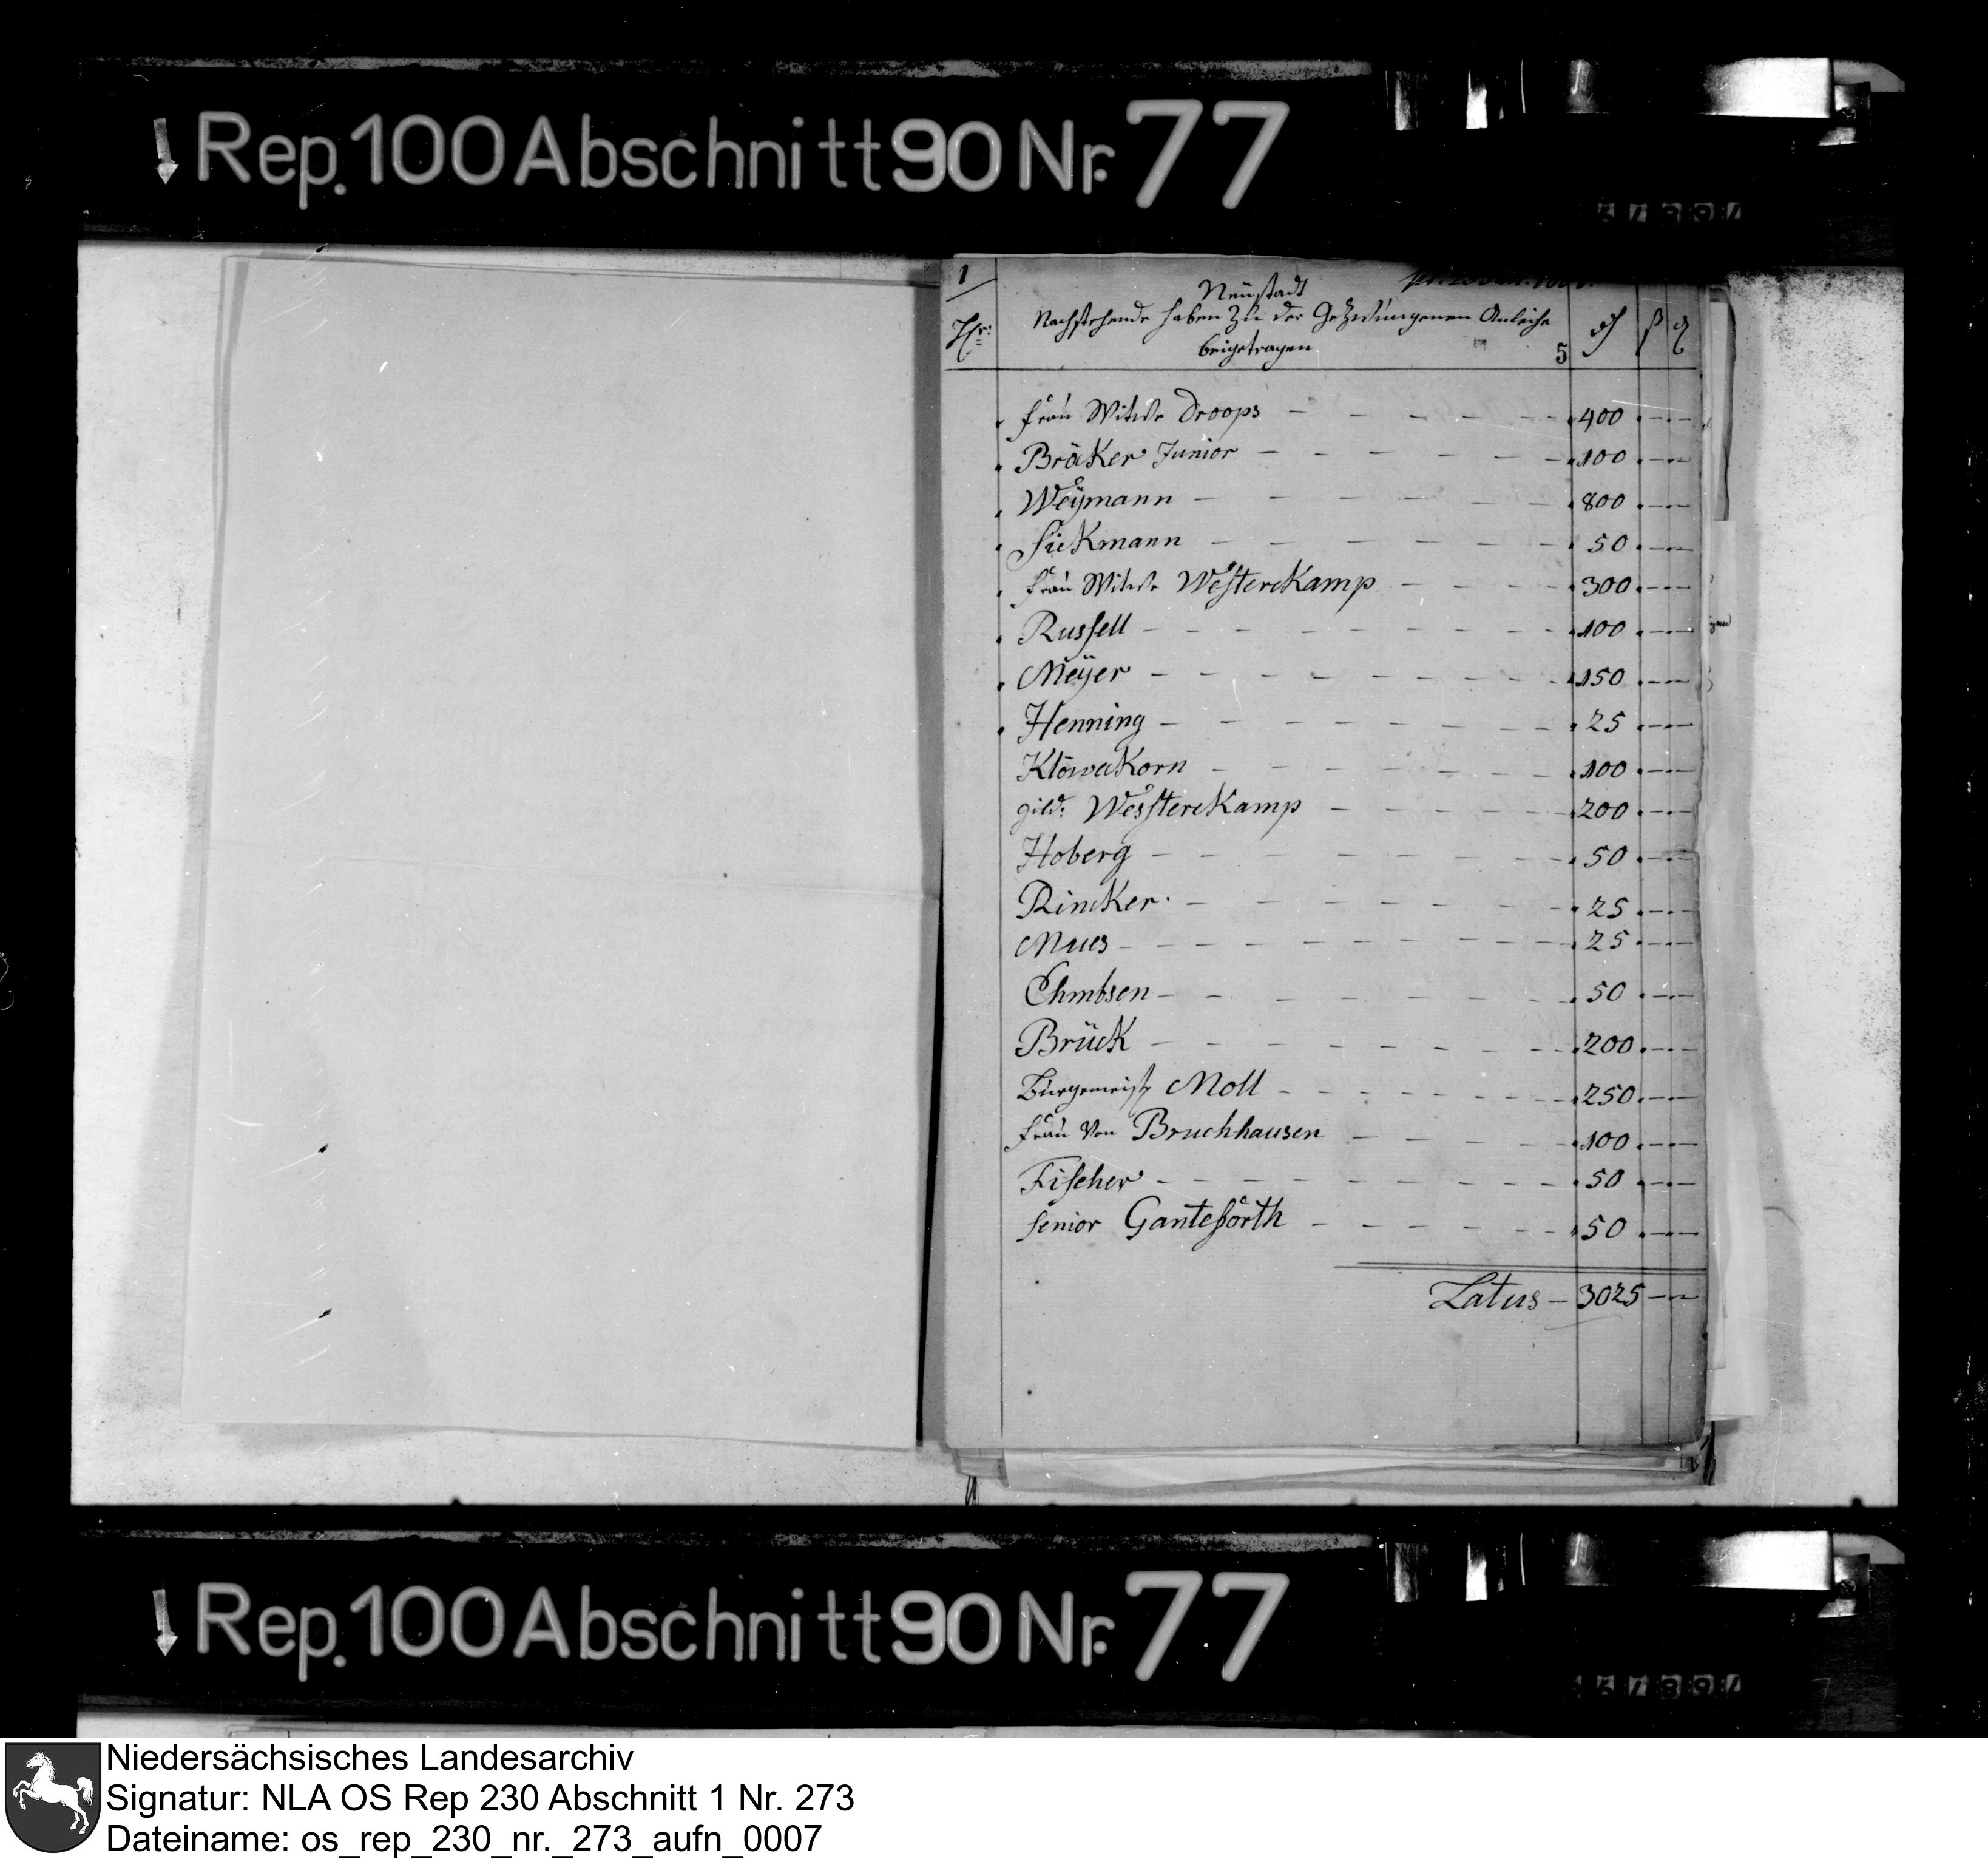 Rep. 100 Abschnitt 90 Nr. 77
1
Neüstadt
Nachstehende haben Zu der Gezwüngenen Anleihe
beigetragen
5
Frau Witwe Droops - - - - - - 400 - -
Bräker Junior - - - - - - 100 - -
Weÿmann - - - - - - 800 - -
Siekmann - - - - - - 50 - -
Frau Witwe Westerckamp - - - - 300 - -
Russell - - - - - - - - 100 - -
Meÿer - - - - - - - - 150 - -
Henning - - - - - - - 25 - -
Klöwekorn - - - - - - - 100 - -
gild: Wessterckamp - - - - - 200 - -
Hoberg - - - - - - - - 50 - -
Rincker - - - - - - - 25 - -
Mues - - - - - - - - 25 - -
Ehmbsen - - - - - - - - 50 - -
Brück - - - - - - - - 200 - -
Bürgemeist Moll - - - - - - - 250 - -
Frau Von Bruchhausen - - - - - 100 - -
Fischer - - - - - - - - 50 - -
Senior Ganteforth - - - - - - 50 - -
Latus - 3025 - -
Rep. 100 Abschnitt 90 Nr. 77
Niedersächsisches Landesarchiv
Signatur: NLA OS Rep 230 Abschnitt 1 Nr. 273
Dateiname: os_rep_230_nr._273_aufn_0007